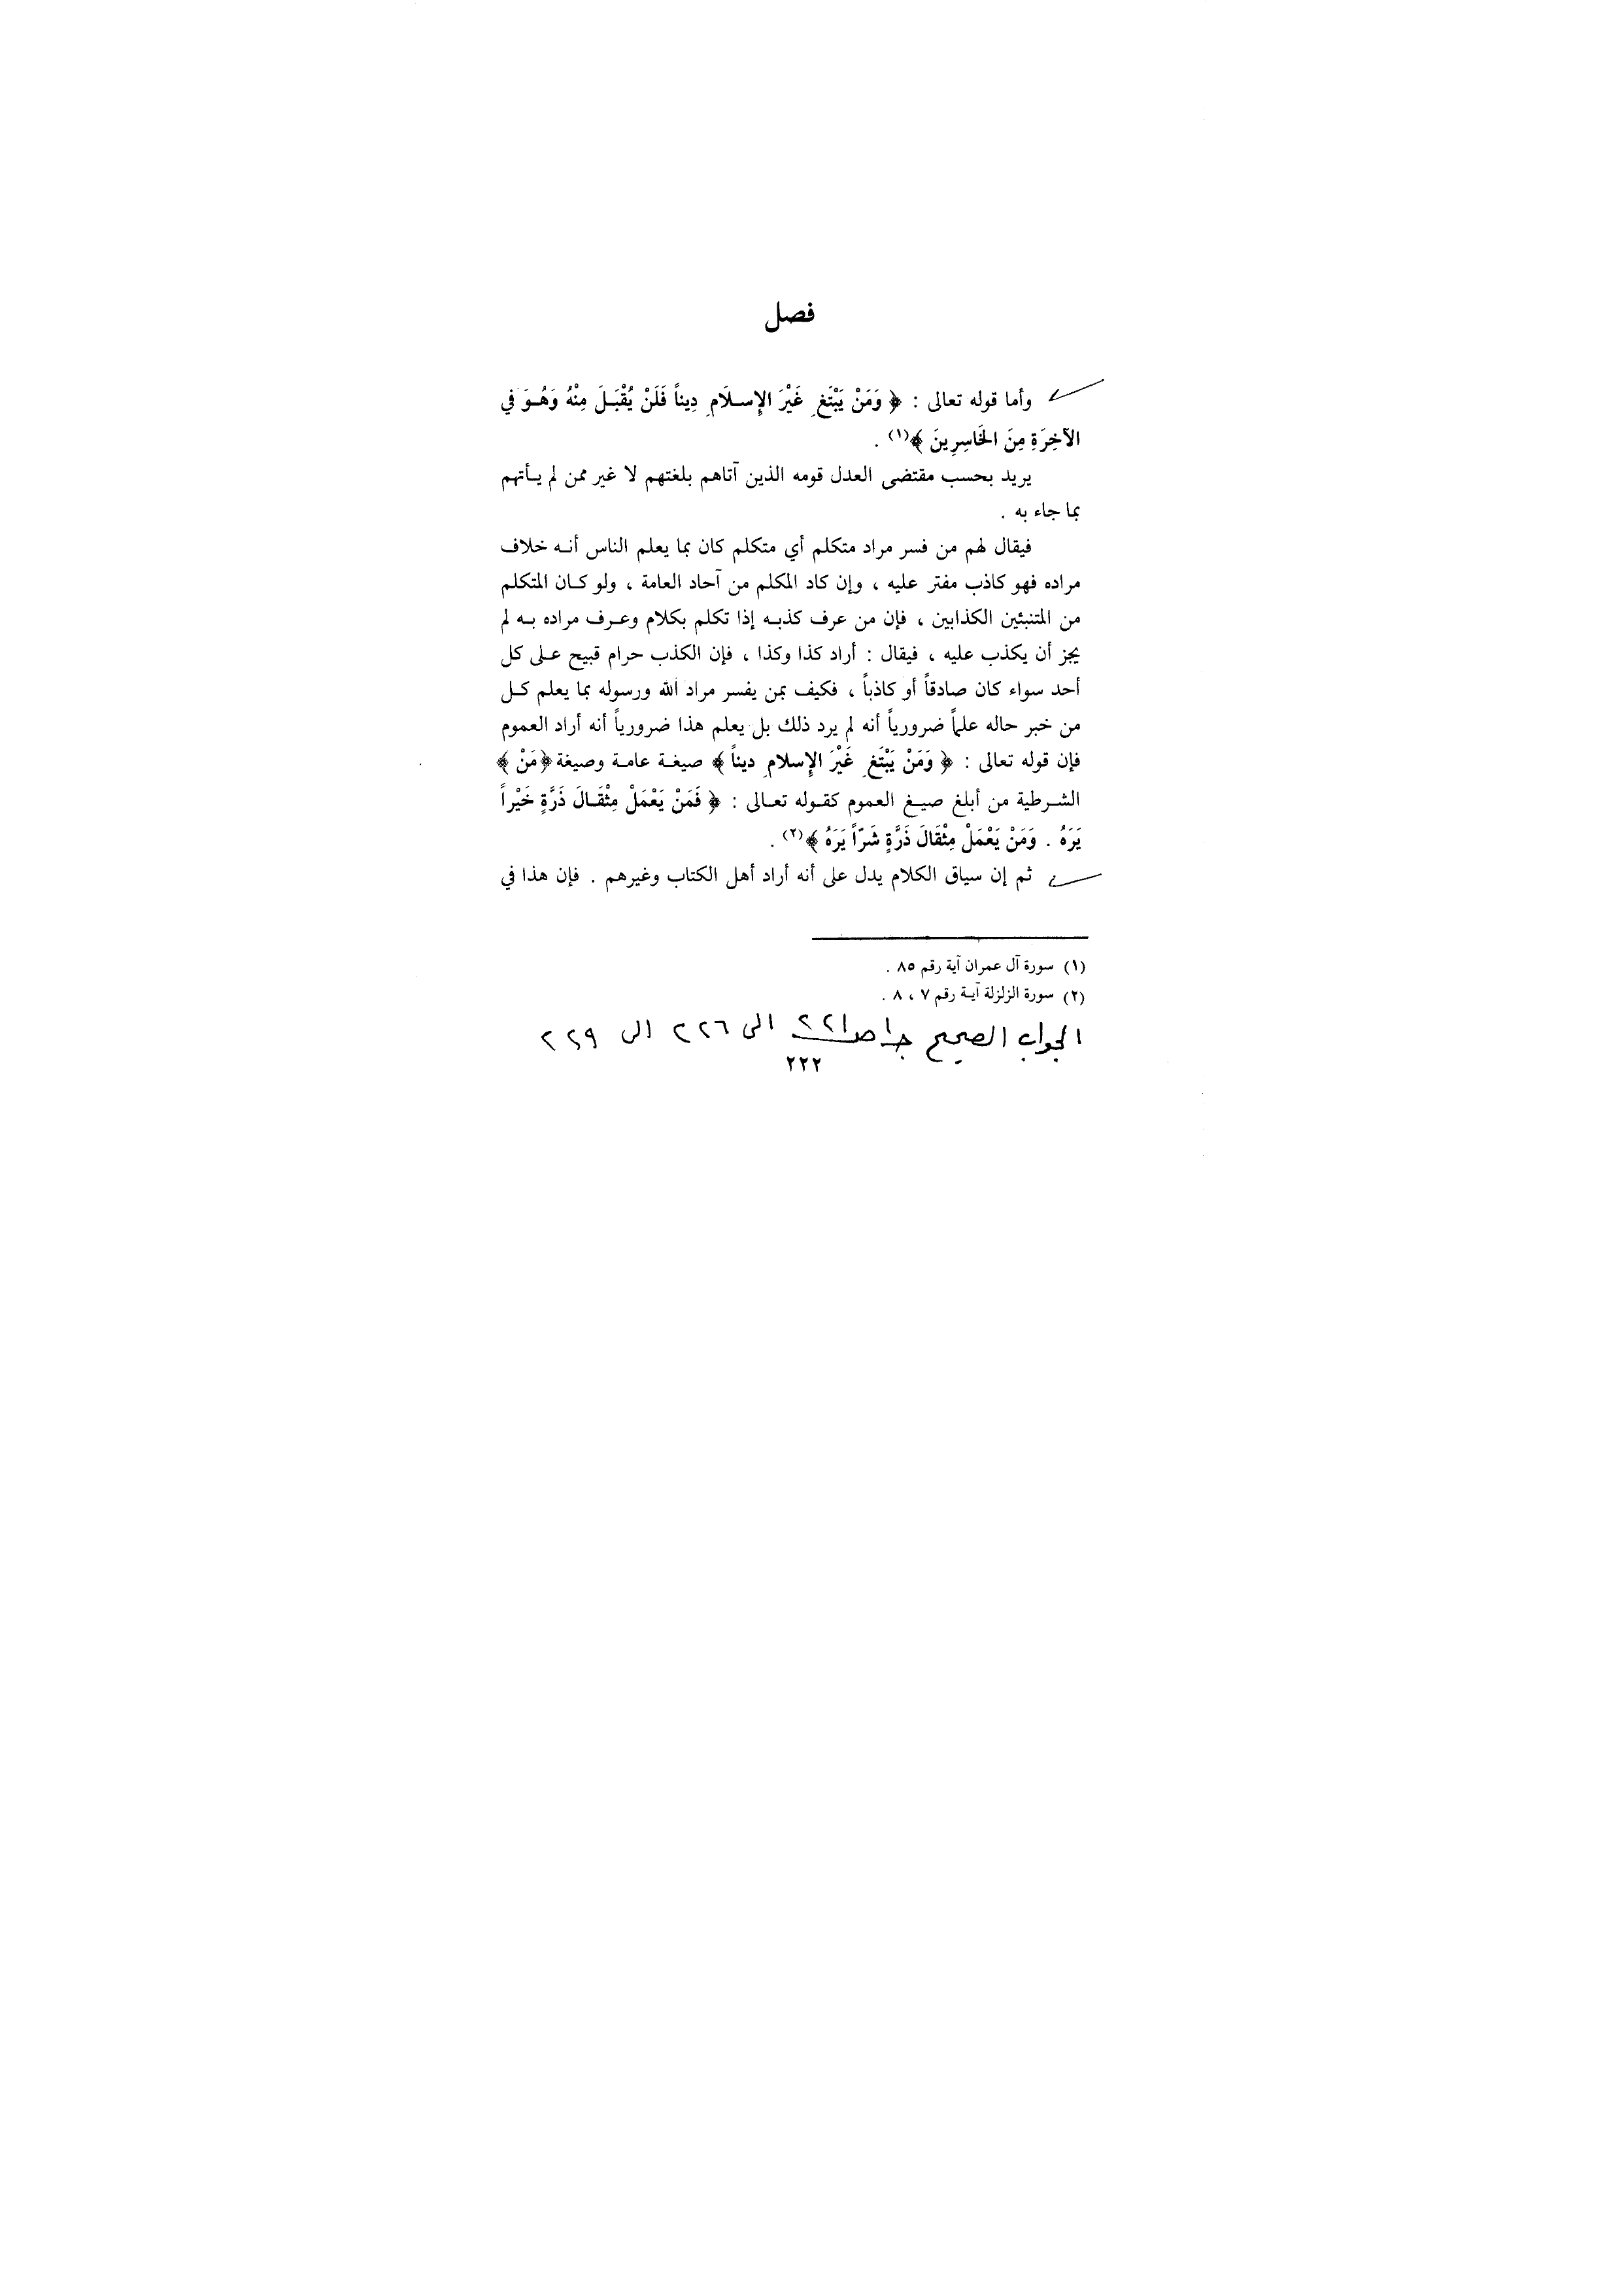 فصل
وأما قوله تعالى : ﴿ وَمَنْ يَبْتَغِ غَيْرَ الإِسـلَامِ دِيناً فَلَنْ يُقْبَـلَ مِنْهُ وَهُـوَ في
الآخِرَةِ مِنَ الخَاسِرِينَ ﴾(١) .
يريد بحسب مقتضى العدل قومه الذين آتاهم بلغتهم لا غير ممن لم يـأتهم
بما جاء به .
فيقال لهم من فسر مراد متكلم أي متكلم كان بما يعلم الناس أنـه خلاف
مراده فهو كاذب مفتر عليه ، وإن كاد المكلم من آحاد العامة ، ولو كـان المتكلم
من المتنبئين الكذابين ، فإن من عرف كذبـه إذا تكلم بكلام وعـرف مراده بـه لم
يجز أن يكذب عليه ، فيقال : أراد كذا وكذا ، فإن الكذب حرام قبيح عـلى كل
أحد سواء كان صادقاً أو كاذباً ، فكيف بمن يفسر مراد الله ورسوله بما يعلم كـل
من خبر حاله علماً ضرورياً أنه لم يرد ذلك بل يعلم هذا ضرورياً أنه أراد العموم
فإن قوله تعالى : ﴿ وَمَنْ يَبْتَغِ غَيْرَ الإِسلامِ ديناً ﴾ صيغـة عامـة وصيغة ﴿مَنْ ﴾
الشـرطية من أبلغ صيـغ العموم كقـوله تعـالى : ﴿ فَمَنْ يَعْمَلْ مِثْقَـالَ ذَرَّةٍ خَيْراً
يَرَهُ . وَمَنْ يَعْمَلْ مِثْقَالَ ذَرَّةٍ شَرّاً يَرَهُ ﴾(٢) .
ثم إن سياق الكلام يدل على أنه أراد أهل الكتاب وغيرهم . فإن هذا في
(١) سورة آل عمران آية رقم ٨٥ .
(٢) سورة الزلزلة آيـة رقم ٧ ، ٨ .
الجواب الصحيح جـ١ صـ٢٢١ الى ٢٢٦ الى ٢٢٩
٢٢٢